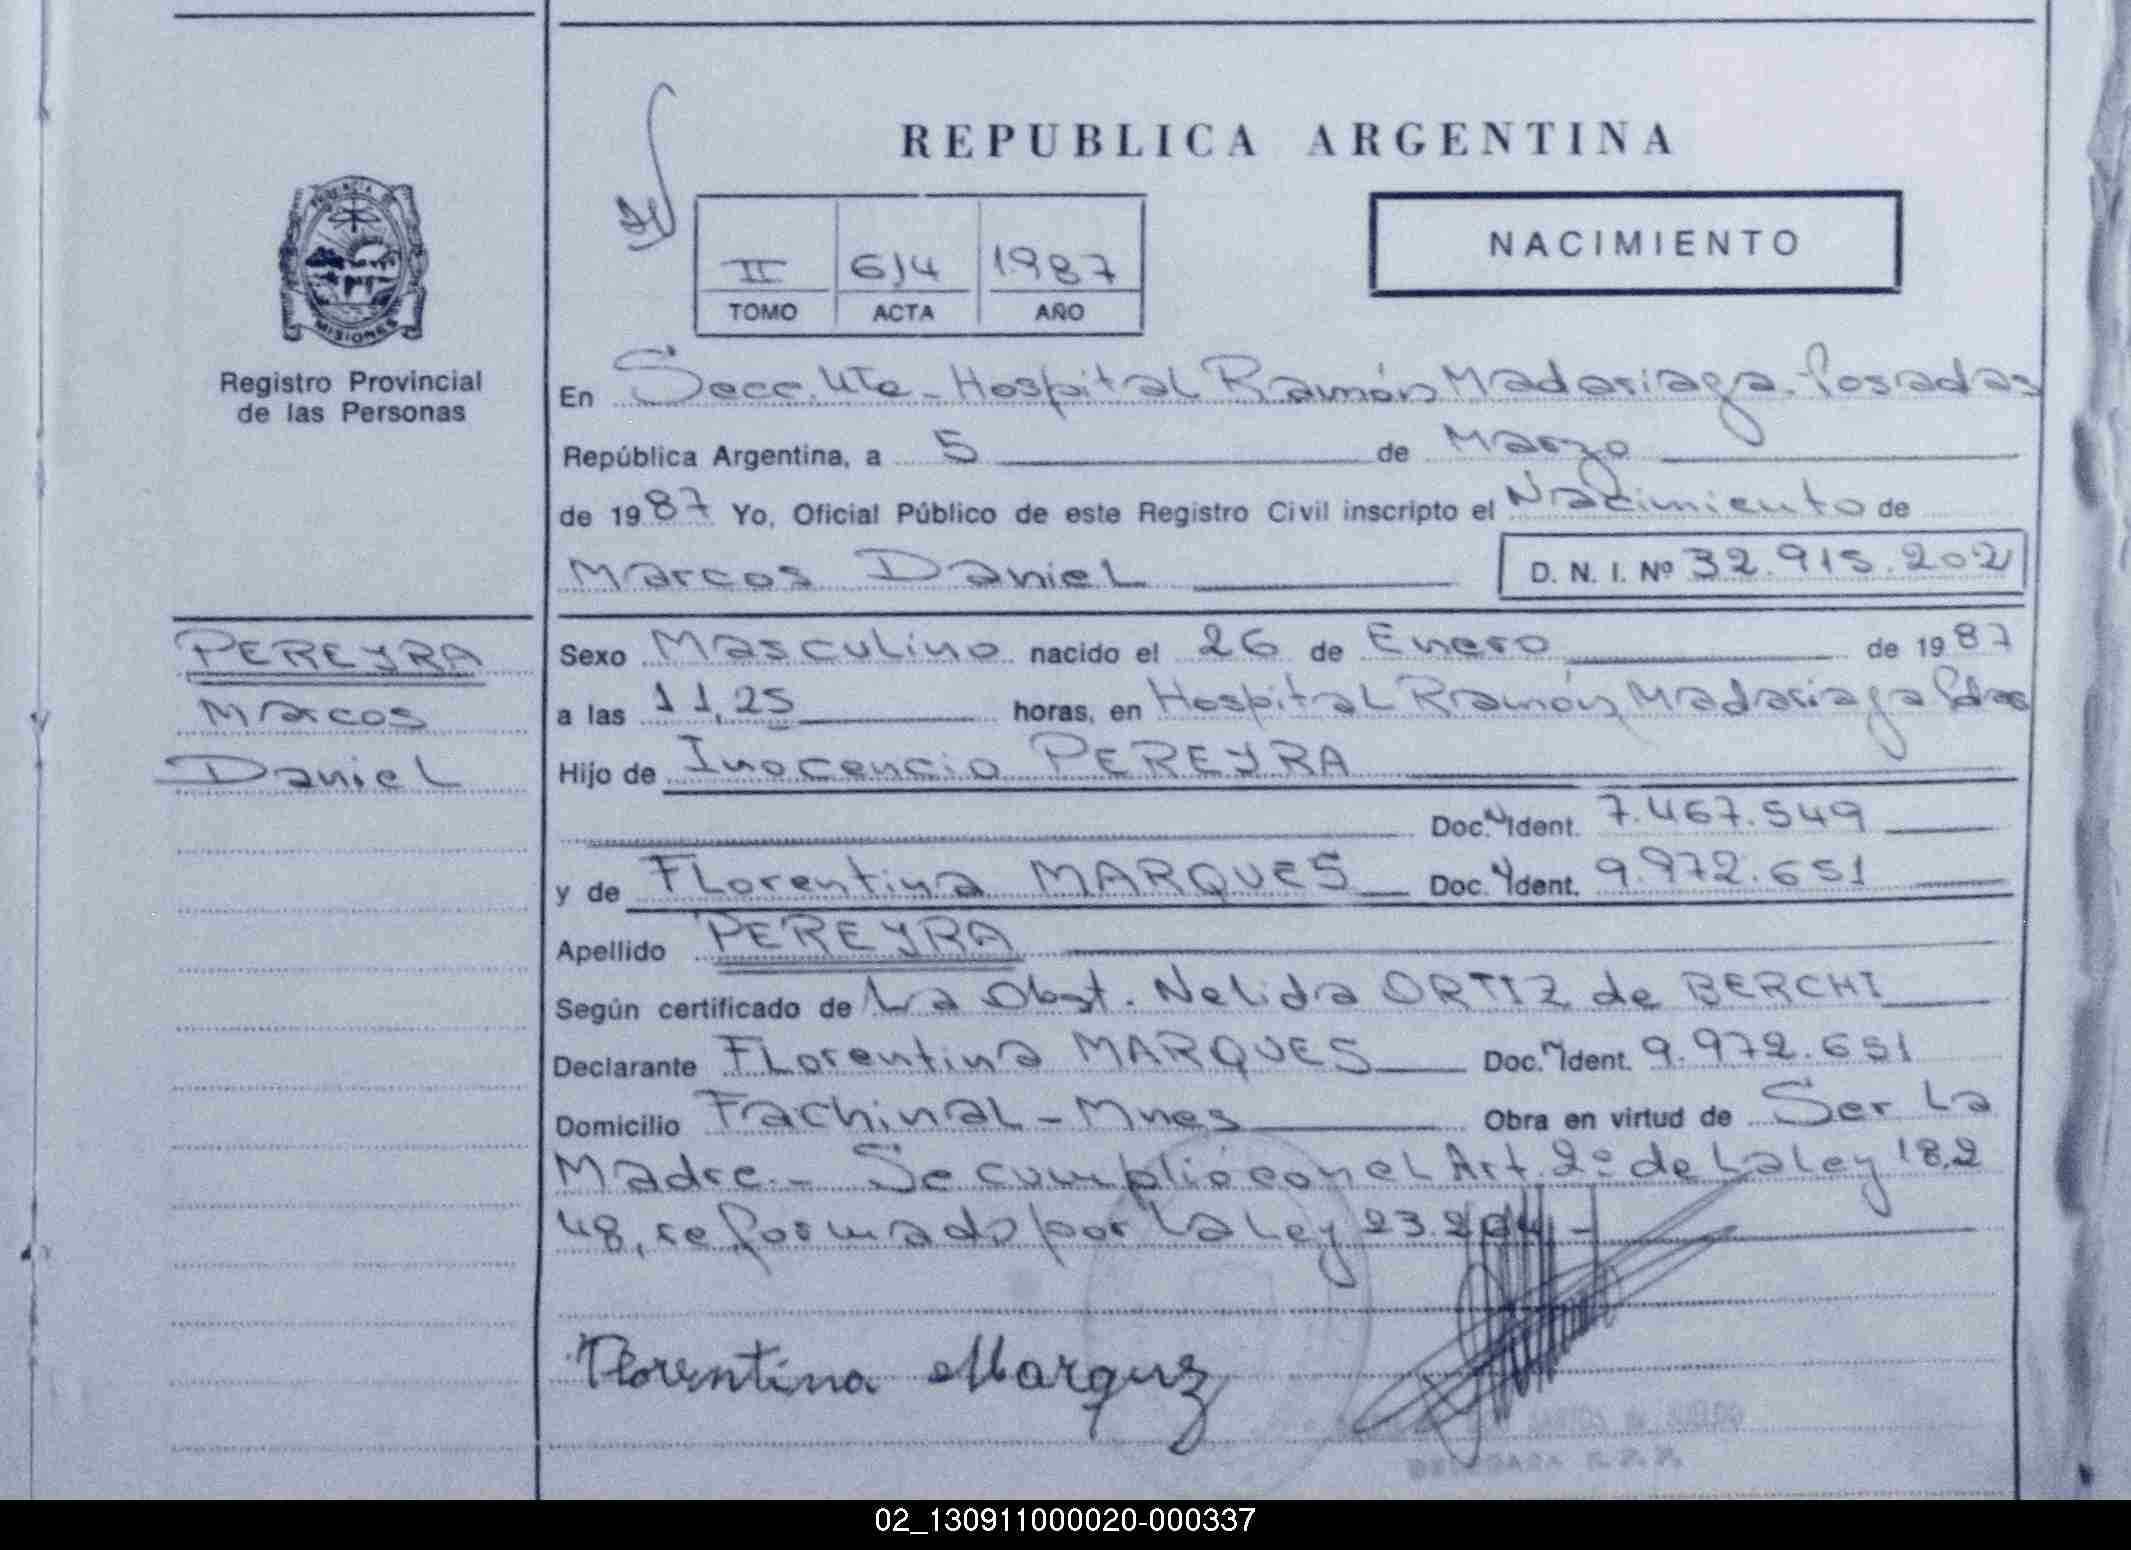 REPUBLICA ARGENTINA
NACIMIENTO
II 614 1987
TOMO ACTA AÑO
PROVINCIA DE
MISIONES
Registro Provincial
de las Personas
En Secc. Hte - Hospital Ramón Madariaga - Posadas
República Argentina, a 5 de Marzo
de 1987 Yo, Oficial Público de este Registro Civil inscripto el Nacimiento de
Marcos Daniel D. N. I. Nº 32.915.202
PEREYRA
Marcos
Daniel
Sexo Masculino nacido el 26 de Enero de 1987
a las 11,25 horas, en Hospital Ramón Madariaga Pdas
Hijo de Inocencio PEREYRA
Doc. Ident. 7.467.549
y de Florentina MARQUES Doc. Ident. 9.972.651
Apellido PEREYRA
Según certificado de La Obst. Nelida ORTIZ de BERCHI
Declarante Florentina MARQUES Doc. Ident. 9.972.651
Domicilio Fachinal - Mnes Obra en virtud de Ser La
Madre - Se cumplió con el Art. 2º de La Ley 18.2
48, reformado por La Ley 23.264 -
Florentina Marquez
DELEGADA R. P. P.
02_130911000020-000337